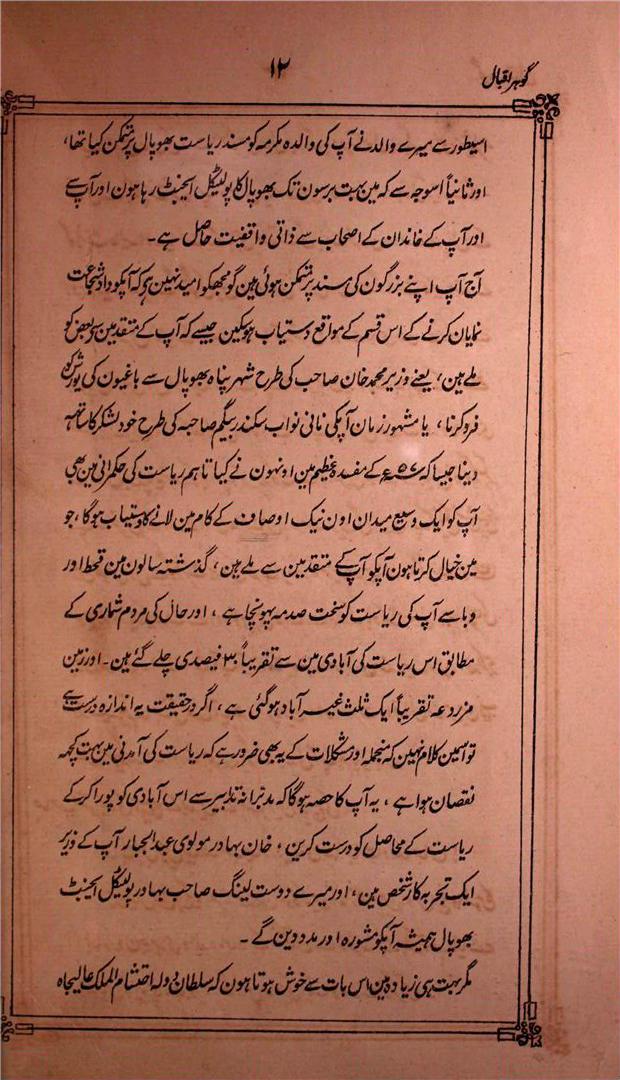 گوہر اقبال
۱۲
اسیطور سے میرے والد نے آپ کی والدہ مکرمہ کو مسند ریاست بھوپال پر متمکن کیا تھا،
اور ثانیاً اسوجہ سے کہ مین بہت برسون تک بھوپال کا پولیٹکل ایجنٹ رہا ہون اور آپ سے
اور آپ کے خاندان کے اصحاب سے ذاتی واقفیت حاصل ہے۔
آج آپ اپنے بزرگون کی مسند پر متمکن ہوئی ہین گو مجھکو امید نہین ہے کہ آپکو داد شجاعت
نمایان کرنے کے اس قسم کے مواقع دستیاب ہوسکین جیسے کہ آپ کے متقدمین مین بعض کو
ملے ہین، یعنے وزیر محمد خان صاحب کی طرح شہر پناہ بھوپال سے باغیون کی یورش کو
فرو کرنا، یا مشہور زمان آپکی نانی نواب سکندر بیگم صاحبہ کی طرح خود لشکر کا ساتھ
دینا جیسا کہ ۵۷ء کے مفسدۂ عظیم مین اونہون نے کیا تاہم ریاست کی حکمرانی مین بھی
آپ کو ایک وسیع میدان اون نیک اوصاف کے کام مین لانے کا دستیاب ہوگا، جو
مین خیال کرتا ہون آپکو آپ کے متقدمین سے ملے ہین، گذشتہ سالون مین قحط اور
وبا سے آپ کی ریاست کو سخت صدمہ پہونچا ہے، اور حال کی مردم شماری کے
مطابق اس ریاست کی آبادی مین سے تقریباً ۳۰ فیصدی چلے گئے ہین۔ اور زمین
مزروعہ تقریباً ایک ثلث غیر آباد ہوگئی ہے، اگر درحقیقت یہ اندازہ درست ہے
تو اسمین کلام نہین کہ منجملہ اور مشکلات کے یہ بھی ضرور ہے کہ ریاست کی آمدنی مین بہت کچھ
نقصان ہوا ہے، یہ آپ کا حصہ ہوگا کہ مدبرانہ تدابیر سے اس آبادی کو پورا کر کے
ریاست کے محاصل کو درست کرین، خان بہادر مولوی عبدالجبار آپ کے وزیر
ایک تجربہ کار شخص ہین، اور میرے دوست لینگ صاحب بہادر پولیٹکل ایجنٹ
بھوپال ہمیشہ آپکو مشورہ اور مدد دین گے۔
مگر بہت ہی زیادہ مین اس بات سے خوش ہوتا ہون کہ سلطان دولہ احتشام الملک عالیجاہ